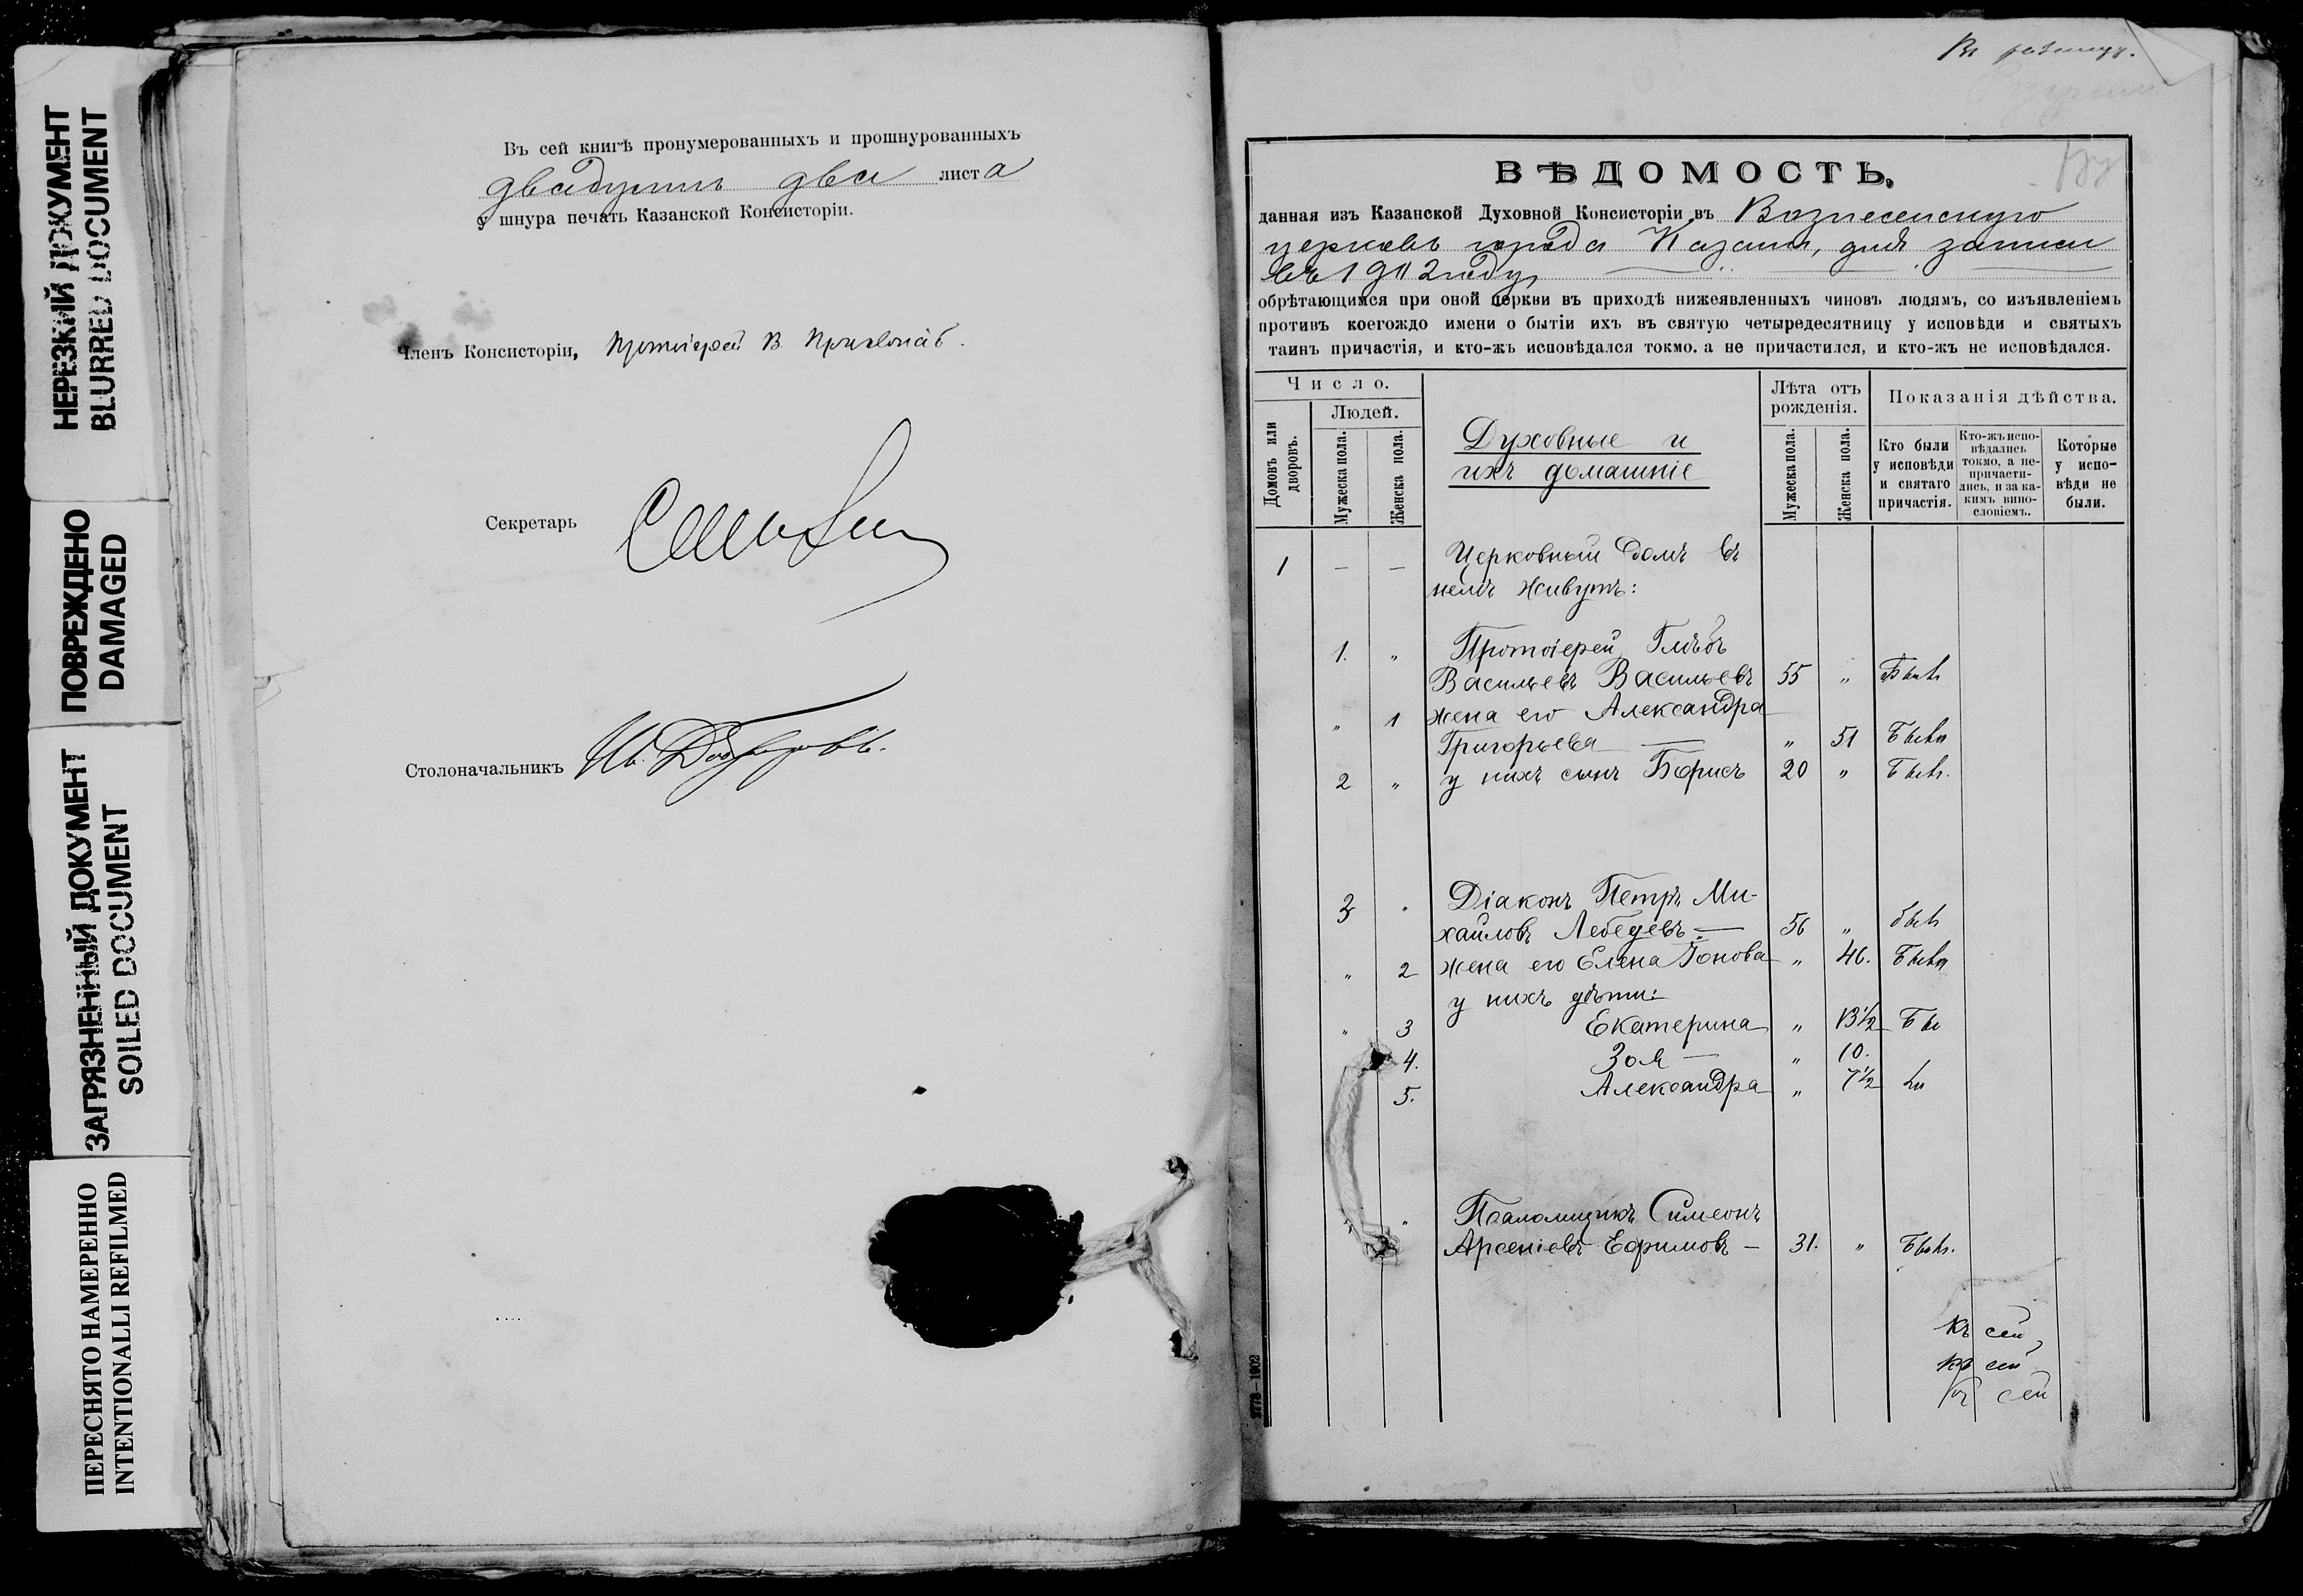 НЕРЕЗКИЙ ДОКУМЕНТ
BLURRED DOCUMENT
ПОВРЕЖДЕНО
DAMAGED
ЗАГРЯЗНЕННЫЙ ДОКУМЕНТ
SOILED DOCUMENT
ПЕРЕСНЯТО НАМЕРЕННО
INTENTIONALLI REFILMED
Въ сей книгѣ пронумерованныхъ и прошнурованныхъ
двадцать два листа
у шнура печать Казанской Консисторіи.
Членъ Консисторіи, Протоіерей В.
Секретарь
Столоначальникъ Ив.
ВѢДОМОСТЬ,
данная изъ Казанской Духовной Консисторіи въ Вознесенскую
церковь города Казани, для записи
въ 1902 году
обрѣтающимся при оной церкви въ приходѣ нижеявленныхъ чиновъ людямъ, со изъявленіемъ
противъ коегождо имени о бытіи ихъ въ святую четыредесятницу у исповѣди и святыхъ
таинъ причастія, и кто-жъ исповѣдался токмо, а не причастился, и кто-жъ не исповѣдался.
Число.
Домовъ или дворовъ.
Людей.
Мужеска пола.
Женска пола.
Духовные и
ихъ домашніе
Лѣта отъ рожденія.
Мужеска пола.
Женска пола.
Показанія дѣйства.
Кто были у исповѣди и святаго причастія.
Кто-жъ исповѣдались токмо, а непричастились, и за какимъ винословіемъ.
Которые у исповѣди не были.
1 — — Церковный домъ въ
немъ живутъ:
1. „ Протоіерей Глѣбъ
Васильевъ Васильевъ 55 „ Былъ
„ 1 жена его Александра
Григорьева — „ 51 Была
2 „ у нихъ сынъ Борисъ 20 „ Былъ.
3 „ Діаконъ Петръ Ми-
хайловъ Лебедевъ — 56 „ былъ
„ 2 жена его Елена Іонова „ 46. Была
у нихъ дѣти:
„ 3 Екатерина „ 13½ Бы
4. Зоя — „ 10.
5. Александра „ 7½ ли
„ Псаломщикъ Симеонъ
Арсеніевъ Ефимовъ — 31. „ Былъ.
къ сей
къ сей
къ сей
2778—1902